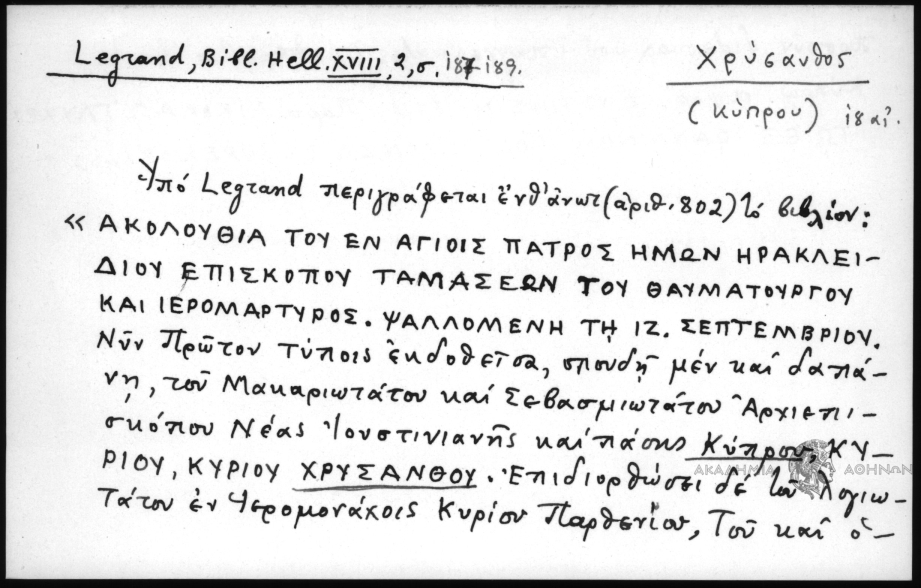 Legrand, Bibl. Hell. XVIII, 2, σ. 187-189.
Χρύσανθος
(Κύπρου) 18 αἰ.
Ὑπό Legrand περιγράφεται ἐνθ' ἀνωτ (ἀριθ. 802) τό βιβλίον:
« ΑΚΟΛΟΥΘΙΑ ΤΟΥ ΕΝ ΑΓΙΟΙΣ ΠΑΤΡΟΣ ΗΜΩΝ ΗΡΑΚΛΕΙ-
ΔΙΟΥ ΕΠΙΣΚΟΠΟΥ ΤΑΜΑΣΕΩΝ ΤΟΥ ΘΑΥΜΑΤΟΥΡΓΟΥ
ΚΑΙ ΙΕΡΟΜΑΡΤΥΡΟΣ. ΨΑΛΛΟΜΕΝΗ ΤΗ ΙΖ. ΣΕΠΤΕΜΒΡΙΟΥ.
Νῦν Πρῶτον τύποις ἐκδοθεῖσα, σπουδῇ μέν καί δαπά-
νῃ, τοῦ Μακαριωτάτου καί Σεβασμιωτάτου Ἀρχιεπι-
σκόπου Νέας Ἰουστινιανῆς καί πάσης Κύπρου, ΚΥ-
ΡΙΟΥ, ΚΥΡΙΟΥ ΧΡΥΣΑΝΘΟΥ. Ἐπιδιορθώσει δέ τοῦ Λογιω-
Τάτου ἐν Ἱερομονάχοις Κυρίου Παρθενίου, Τοῦ καί ὁ-
ΑΚΑΔΗΜΙΑ ΑΘΗΝΩΝ